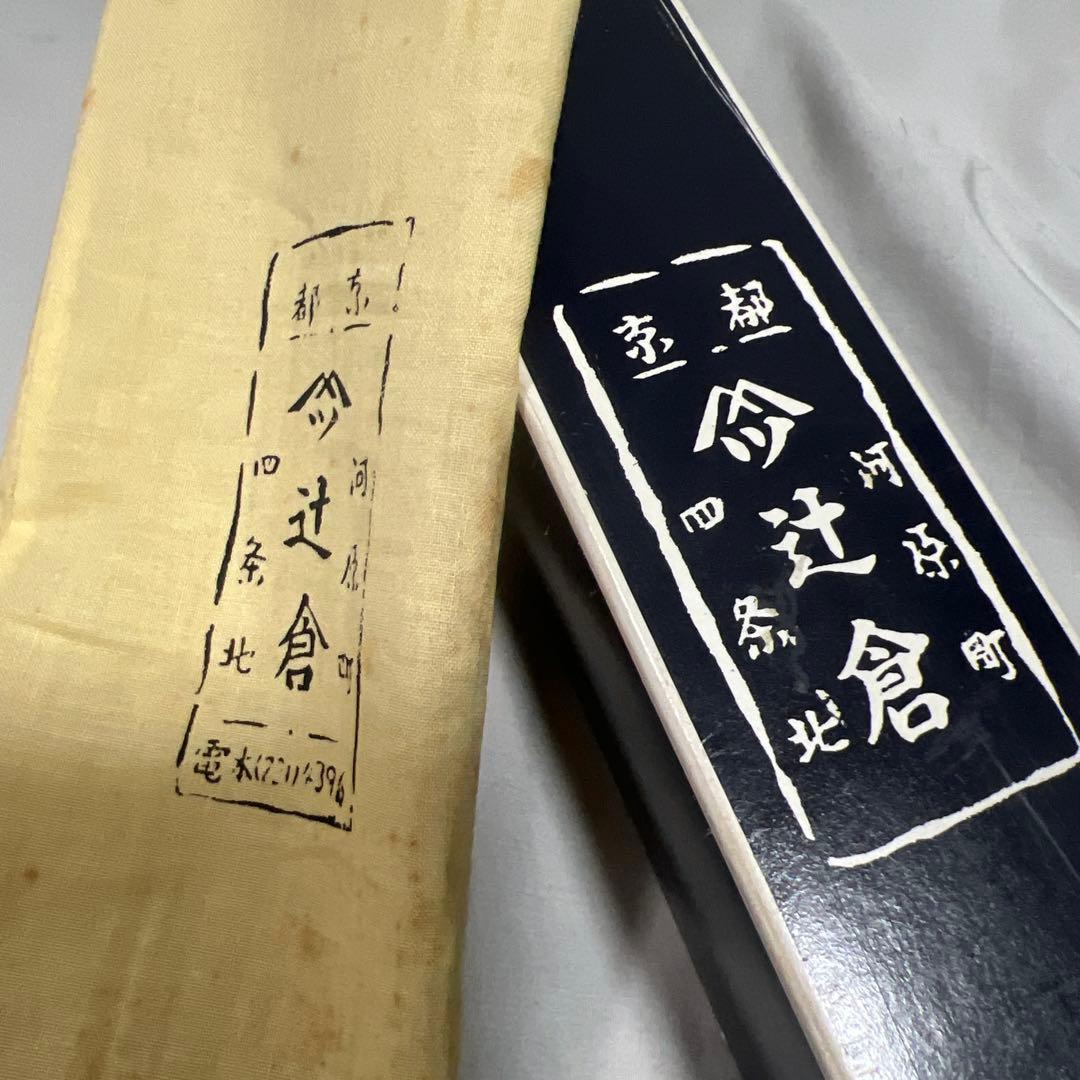 京都
辻倉
河原町
四条北
電本(221)4396
京都
辻倉
河原町
四条北